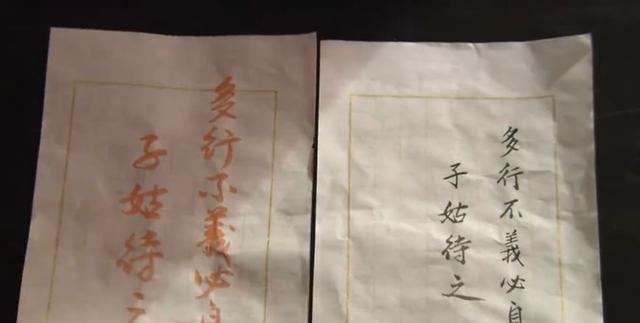 多行不義必自
子姑待之
多行不義必自
子姑待之